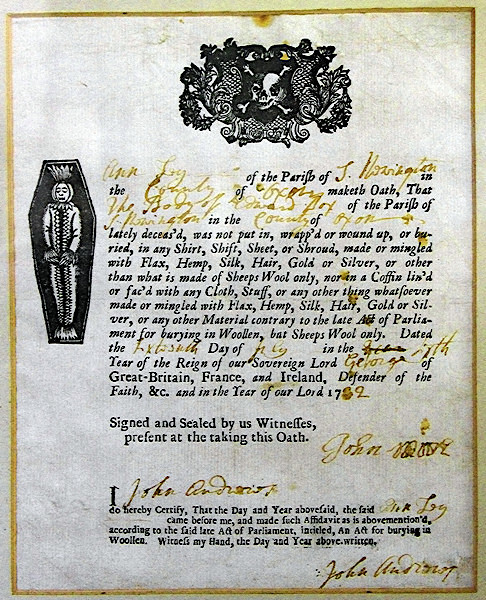 Ann of the Parish of S. Newington in
the County of Oxon maketh Oath, That
The Body of Edward of the Parish of
S. Newington in the County of Oxon
lately deceas'd, was not put in, wrapp'd or wound up, or bu-
ried, in any Shirt, Shift, Sheet, or Shroud, made or mingled
with Flax, Hemp, Silk, Hair, Gold or Silver, or other
than what is made of Sheeps Wool only, nor in a Coffin lin'd
or fac'd with any Cloth, Stuff, or any other thing whatsoever
made or mingled with Flax, Hemp, Silk, Hair, Gold or Sil-
ver, or any other Material contrary to the late Act of Parlia-
ment for burying in Woollen, but Sheeps Wool only. Dated
the Day of in the
Year of the Reign of our Sovereign Lord George of
Great-Britain, France, and Ireland, Defender of the
Faith, &c. and in the Year of our Lord 17
Signed and Sealed by us Witnesses,
present at the taking this Oath.
John
I John Andrews
do hereby Certify, That the Day and Year abovesaid, the said Ann
came before me, and made such Affidavit as is abovemention'd,
according to the said late Act of Parliament, intitled, An Act for burying in
Woollen. Witness my Hand, the Day and Year above-written.
John Andrews